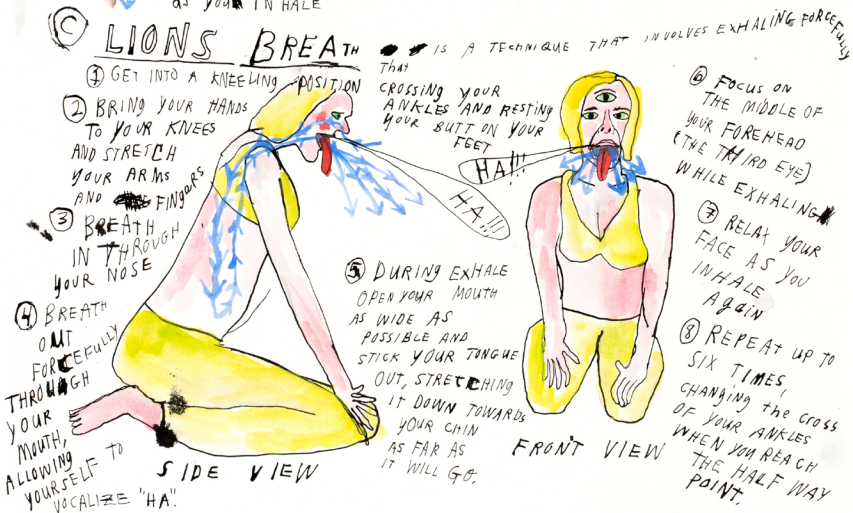 as you INHALE
C LIONS BREATH IS A TECHNIQUE THAT INVOLVES EXHALING FORCEFULLY
1 GET INTO A KNEELING POSITION
That
CROSSING YOUR
ANKLES AND RESTING
YOUR BUTT ON YOUR
FEET
2 BRING YOUR HANDS
TO YOUR KNEES
AND STRETCH
YOUR ARMS
AND FINGERS
3 BREATH
IN THROUGH
YOUR NOSE
4 BREATH
OUT
FORCEFULLY
THROUGH
YOUR
MOUTH,
ALLOWING
YOURSELF TO
VOCALIZE "HA".
HA!!!!
SIDE VIEW
5 DURING EXHALE
OPEN YOUR MOUTH
AS WIDE AS
POSSIBLE AND
STICK YOUR TONGUE
OUT, STRETCHING
IT DOWN TOWARDS
YOUR CHIN
AS FAR AS
IT WILL GO.
HA!!!
FRONT VIEW
6 FOCUS ON
THE MIDDLE OF
YOUR FOREHEAD
(THE THIRD EYE)
WHILE EXHALING
7 RELAX YOUR
FACE AS YOU
INHALE
AgaiN
8 REPEAT UP TO
SIX TIMES,
CHANGING the CROSS
OF YOUR ANKLES
WHEN YOU REACH
THE HALF WAY
POINT.